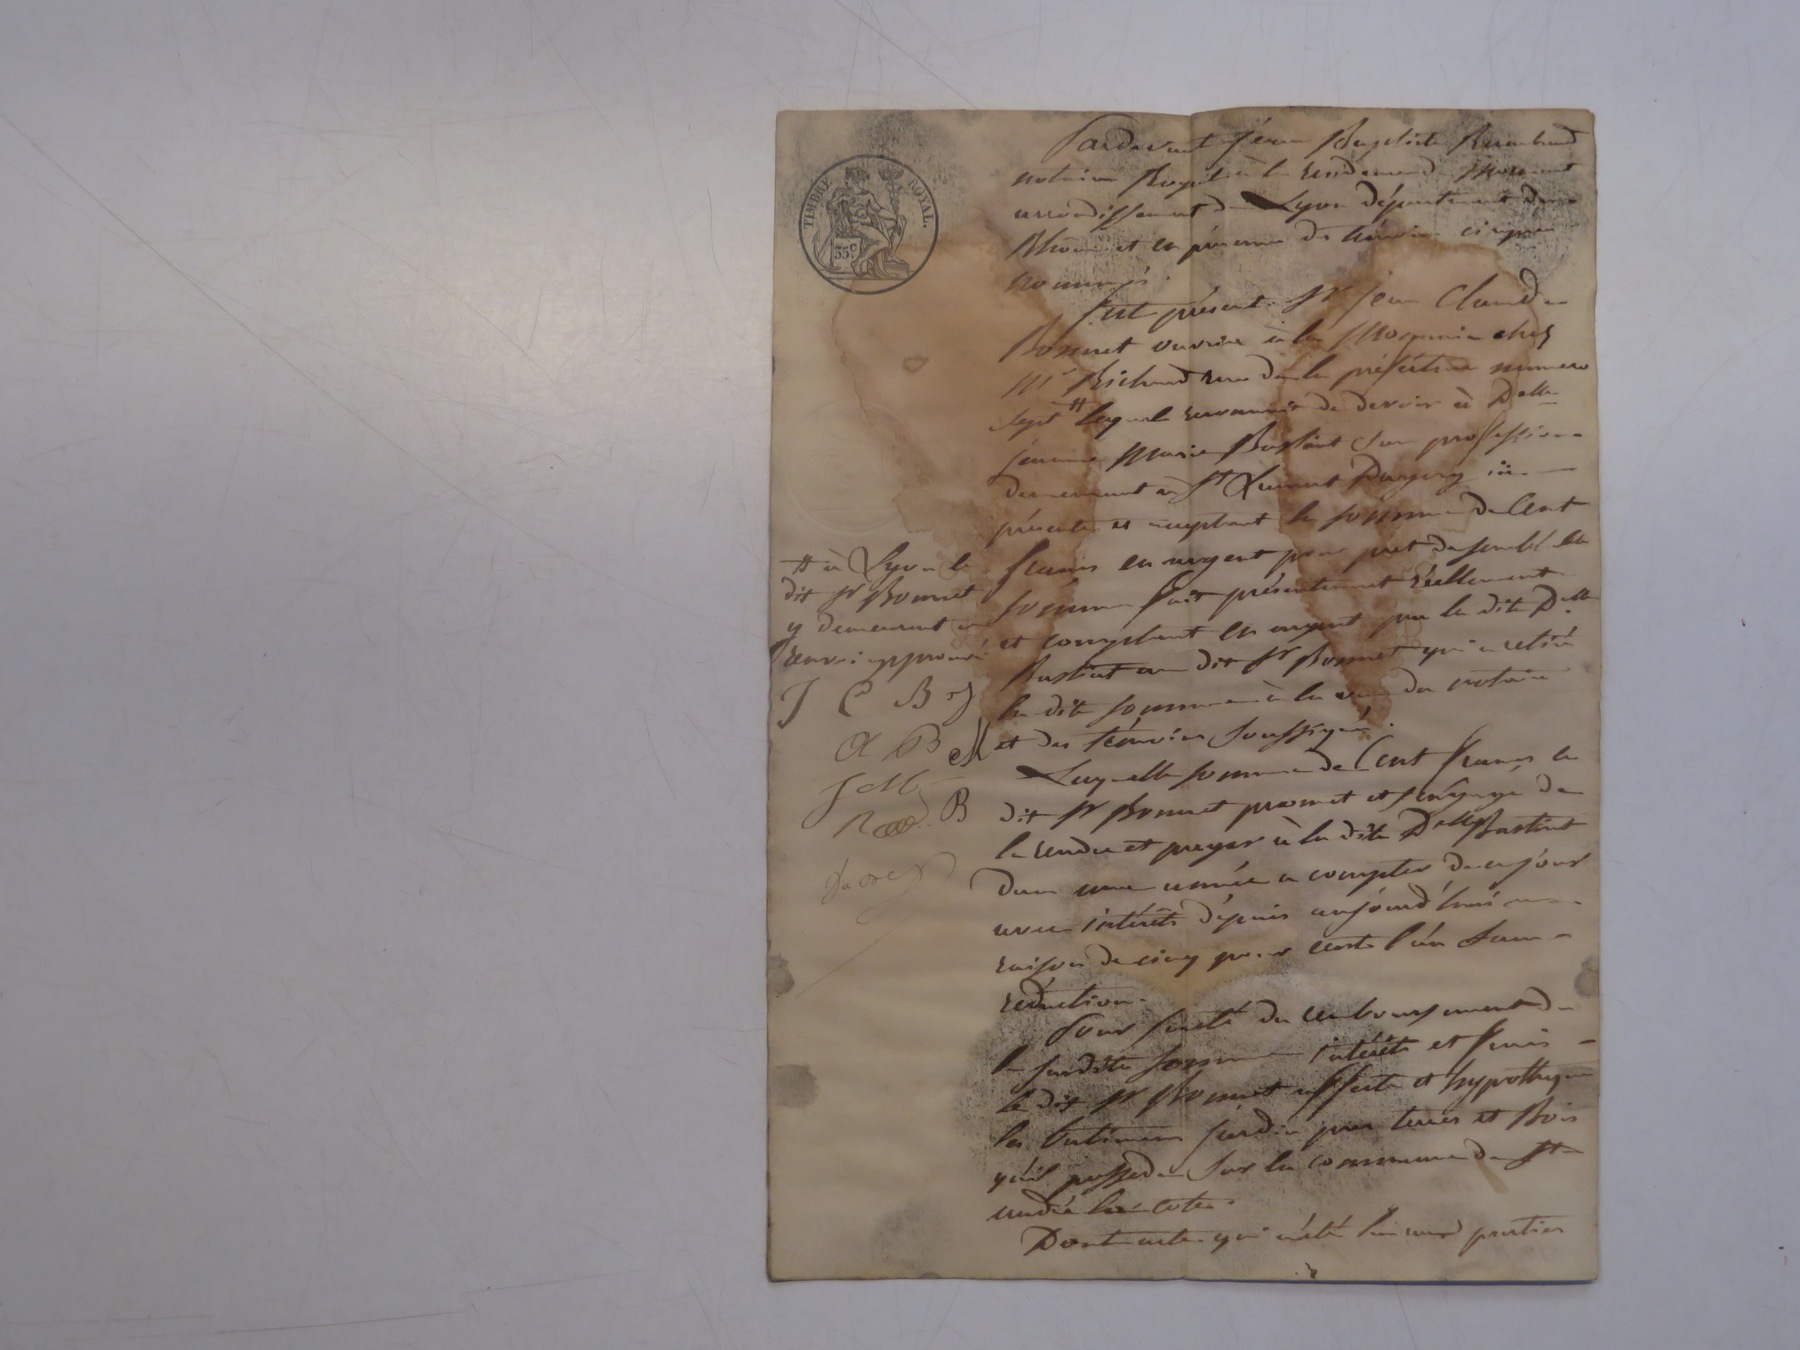 TIMBRE ROYAL.
35 c
Pardevant Jean Baptiste
notaire Royal à la résidence de Mornant
arrondissement de Lyon département du
Rhône et en présence de témoins cy après
nommés.
fut présent Sr jean Claude
Bonnet ouvrier à la chez
Mr Richard rue de la préfecture numero
sept # lequel reconnait de devoir à Delle
jeanne Marie Bastint sans profession
demeurant à St Laurent Dagny ici
présente et acceptant la somme de Cent
francs en argent pour pret de semblable
somme fait présentement réellement
et comptant en argent par la dite Delle
Bastint au dit Sr Bonnet qui a retiré
la dite somme à la vue du notaire
et des témoins soussignés.
Laquelle somme de Cent francs le
dit Sr Bonnet promet et s'engage de
la rendre et payer à la dite Delle Bastint
dans une année a compter de ce jour
avec intérêts dépuis aujourd'hui a
raison de cinq pour cents l'an sans
réduction.
Pour sureté du remboursement de
la susdite somme intérêts et frais
le dit Sr Bonnet affecte et hypothèque
les batiments jardin près terres et Bois
qu'il possede sur la commune de St
andré la cote.
Dont acte qui a été lu aux parties
# à Lyon le
dit Sr Bonnet
y demeurant
renvoi approuvé
J C B
B M
J M
B